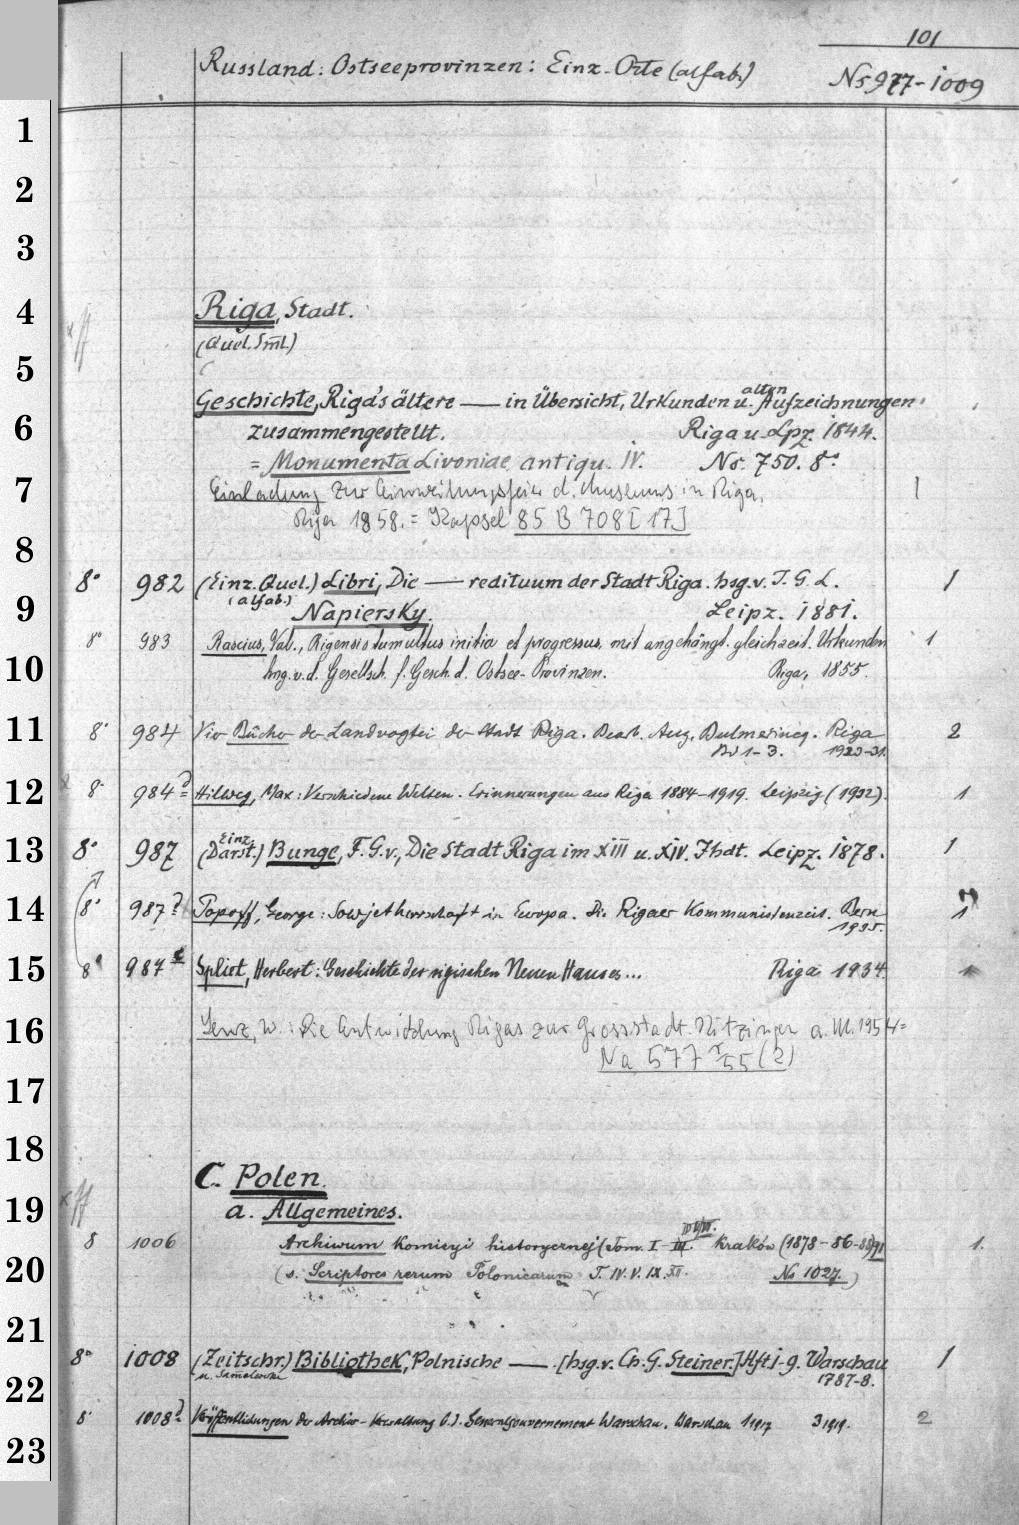 101
Russland: Ostseeprovinzen: Einz. Orte (alfab.) No 977-1009
1
2
3
4 Riga, Stadt.
(Quel. Sml.)
5
Geschichte, Riga's ältere — in Übersicht, Urkunden u. alten Aufzeichnungen
6 zusammengestellt. Riga u. Lpz. 1844.
= Monumenta Livoniae antiqu. IV. No. 750. 8°
7 Einladung zur Einweihungsfeier d. Museums in Riga, 1
Riga 1858. = Kapsel 85 B 708 [17]
8
8° 982 (Einz. Quel.) Libri, Die — redituum der Stadt Riga. hsg. v. J. G. L. 1
(alfab.)
9 Napiersky. Leipz. 1881.
8° 983 Rascius, Val., Rigensis tumultus initia et progressus, mit angehängt. gleichzeit. Urkunden 1
10 hrsg. v. d. Gesellsch. f. Gesch. d. Ostsee-Provinzen. Riga, 1855.
11 8° 984 Vier Bücher der Landvogtei der Stadt Riga. Bearb. Aug. Bulmerincq. Riga 2
Bd 1-3. 1923-31.
12 8° 984 Hilweg, Max: Verschiedene Welten. Erinnerungen aus Riga 1884-1919. Leipzig (1932). 1
13 8° 987 (Einz. Darst.) Bunge, F. G. v., Die Stadt Riga im XIII u. XIV. Jhdt. Leipz. 1878. 1
14 8° 987 Popoff, George: Sowjetherrschaft in Europa. Die Rigaer Kommunistenzeit. Bern 1
1935.
15 8° 987 Spliet, Herbert: Geschichte der rigischen Neuen Hauses... Riga 1934. 1
16 Lenz, W.: Die Entwicklung Rigas zur Grossstadt. Kitzingen a. M. 1954 =
Na 577 55 (2)
17
18
C. Polen.
19 a. Allgemeines.
8 1006 Archiwum Komisyi historycznej Tom. I-III. Kraków (1878-86-88) 91 1.
20 (s. Scriptores rerum Polonicarum T. IV. V. IX. XII. No 1027.)
21
8° 1008 (Zeitschr.) Bibliothek, Polnische — [hsg. v. Ch. G. Steiner.] Hft 1-9. Warschau 1
22 1787-8.
8° 1008 Veröffentlichungen der Archiv-Verwaltung b. d. Generalgouvernement Warschau. Warschau 1 1917 3 1919. 2
23